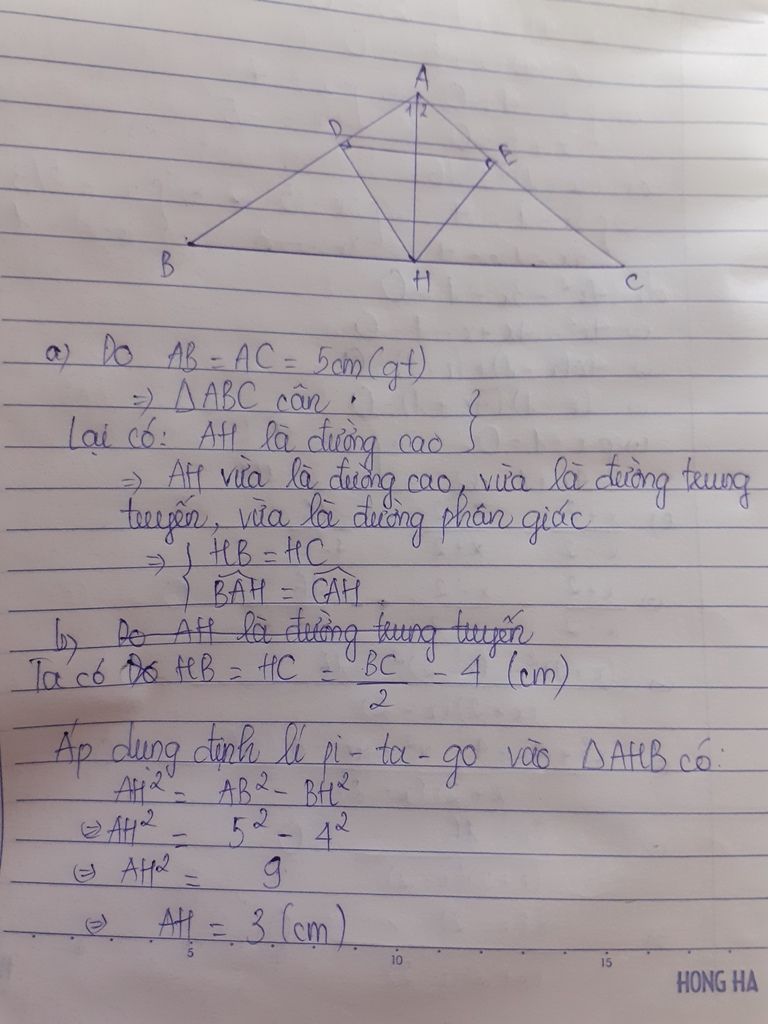 A
1 2
D
E
B
H
C
a) Do AB = AC = 5cm (gt)
=> ΔABC cân.
Lại có: AH là đường cao }
=> AH vừa là đường cao, vừa là đường trung
tuyến, vừa là đường phân giác
=> { HB = HC
{ \widehat{BAH} = \widehat{CAH}.
b) ~~Do AH là đường trung tuyến~~
Ta có ~~Do~~ HB = HC = \frac{BC}{2} = 4 (cm)
Áp dụng định lí pi-ta-go vào ΔAHB có:
AH² = AB² - BH²
⇔ AH² = 5² - 4²
⇔ AH² = 9
⇔ AH = 3 (cm)
5 10 15
HONG HA